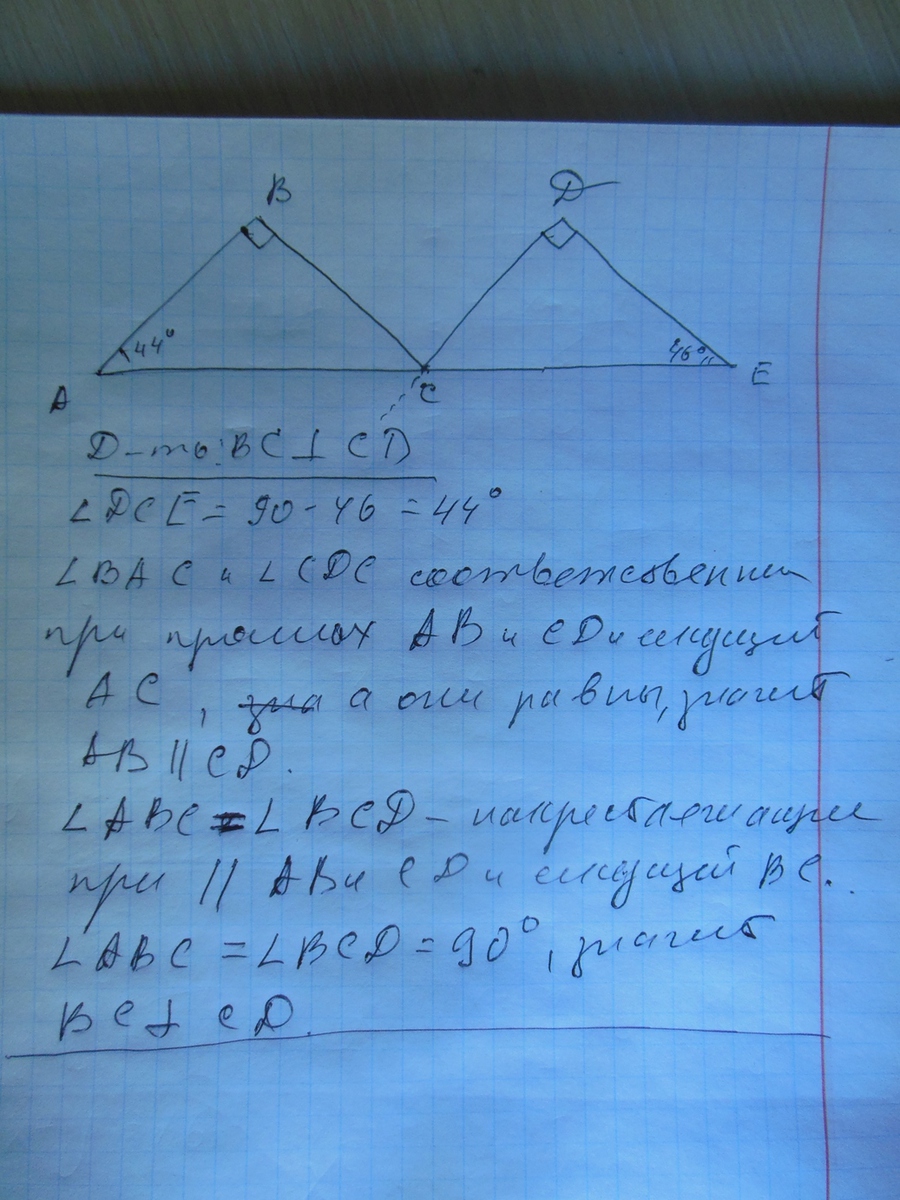 B
D
44°
46°
A
C
E
Д-ть: BC ⊥ CD
∠DCE = 90 - 46 = 44°
∠BAC и ∠CDC соответсвенные
при прямых AB и CD и секущий
AC, зна а они равны, значит
AB || CD.
∠ABC = ∠BCD - накрестлежащие
при || AB и CD и секущей BC.
∠ABC = ∠BCD = 90°, значит
BC ⊥ CD.